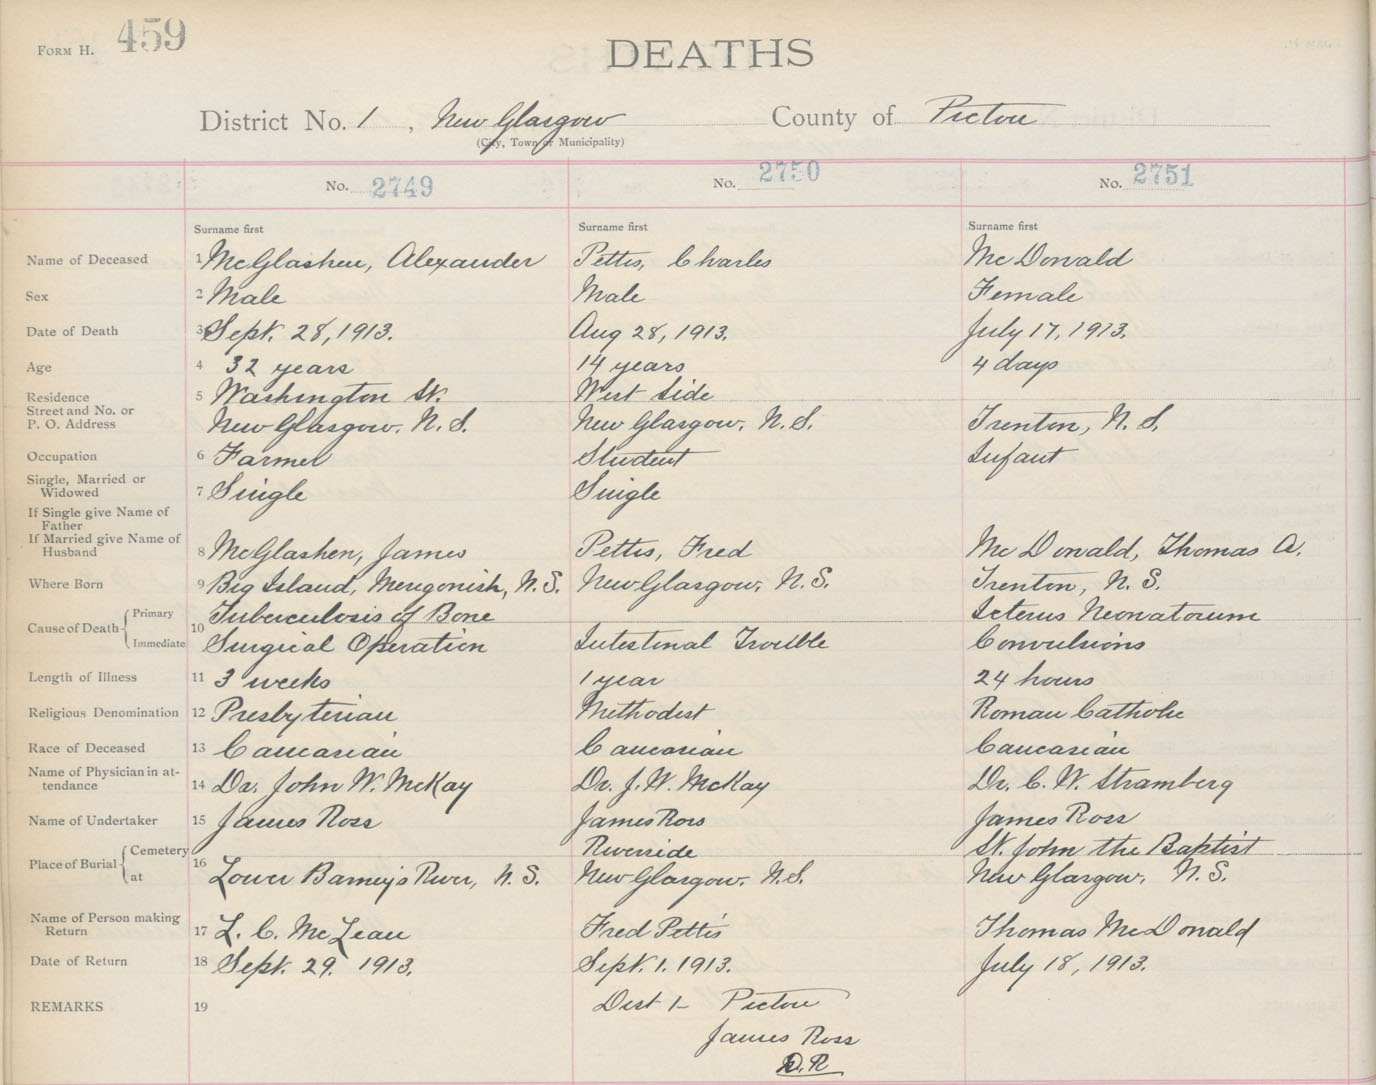 FORM H. 459
DEATHS
District No. 1, New Glasgow County of Pictou
(City, Town or Municipality)
No. 2749 No. 2750 No. 2751
Surname first Surname first Surname first
Name of Deceased 1 McGlashen, Alexander Pettis, Charles McDonald
Sex 2 Male Male Female
Date of Death 3 Sept. 28, 1913. Aug 28, 1913. July 17, 1913.
Age 4 32 years 14 years 4 days
Residence 5 Washington St. West Side
Street and No. or
P. O. Address New Glasgow. N. S. New Glasgow. N. S. Trenton, N. S.
Occupation 6 Farmer Student Infant
Single, Married or
Widowed 7 Single Single
If Single give Name of
Father
If Married give Name of
Husband 8 McGlashen, James Pettis, Fred McDonald, Thomas A.
Where Born 9 Big Island, Merigonish, N. S. New Glasgow. N. S. Trenton, N. S.
Primary Tuberculosis of Bone Icterus Neonatorum
Cause of Death 10
Immediate Surgical Operation Intestinal Trouble Convulsions
Length of Illness 11 3 weeks 1 year 24 hours
Religious Denomination 12 Presbyterian Methodist Roman Catholic
Race of Deceased 13 Caucasian Caucasian Caucasian
Name of Physician in at-
tendance 14 Dr. John W. McKay Dr. J. W. McKay Dr. C. W. Stramberg
Name of Undertaker 15 James Ross James Ross James Ross
Cemetery Riverside St. John the Baptist
Place of Burial 16
at Lower Barney's River, N. S. New Glasgow. N. S. New Glasgow, N. S.
Name of Person making
Return 17 L. C. McLean Fred Pettis Thomas McDonald
Date of Return 18 Sept. 29. 1913. Sept. 1. 1913. July 18, 1913.
REMARKS 19 Dist 1 Pictou
James Ross
D. R